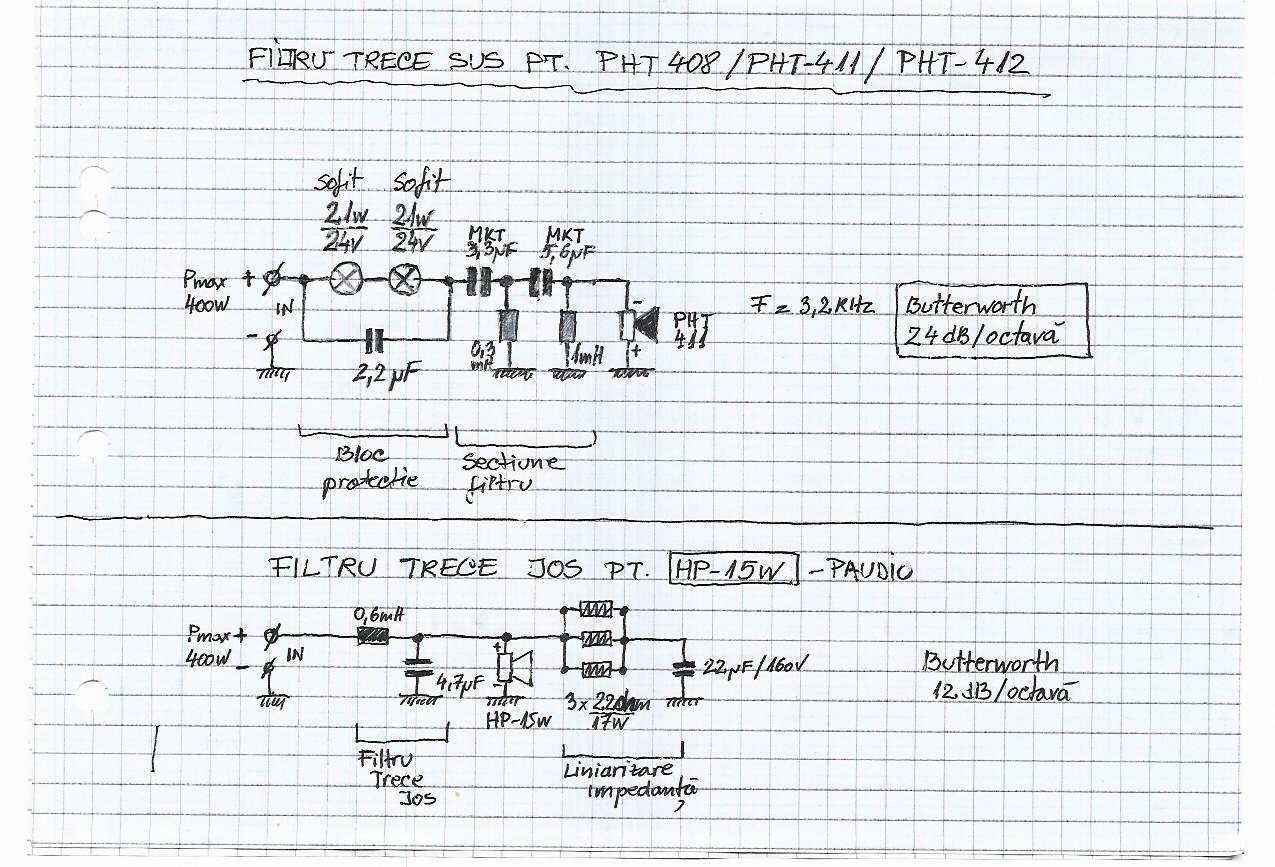 FILTRU TRECE SUS PT. PHT 408 / PHT-411 / PHT-412
Sofit Sofit
21w 21w
24V 24V
MKT MKT
3,3µF 5,6µF
Pmax +
400W
IN
-
2,2 µF
0,3
mH
1mH
-
+
PHT
411
F = 3,2 KHz
Butterworth
24 dB/octavă
Bloc
protectie
Sectiune
filtru
FILTRU TRECE JOS PT. HP-15W - PAUDIO
Pmax +
400W -
IN
0,6mH
4,7µF
+
-
HP-15W
3 x 22ohm
17W
22µF/160V
Butterworth
12 dB/octavă
Filtru
Trece
Jos
Liniarizare
impedanță